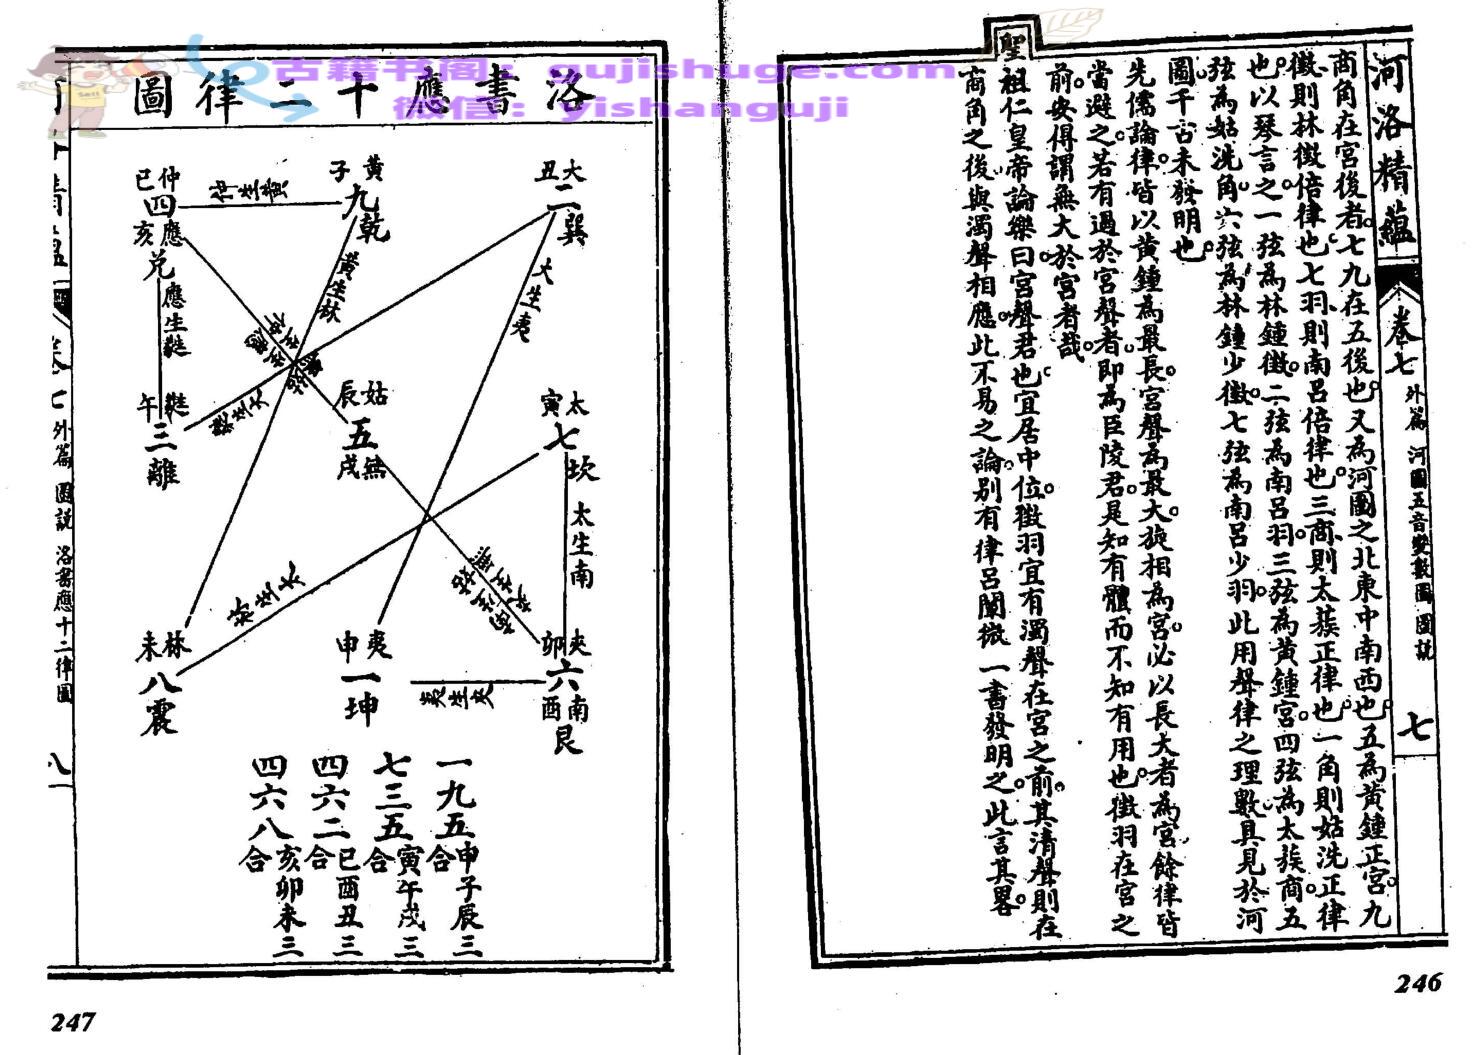 河洛精蘊
卷七
外篇 河圖五音變數圖 圖說
七
商角在宮後者七九在五後也又為河圖之北東中南西也五為黃鐘正宮九
徵則林徵倍律也七羽則南呂倍律也三商則太蔟正律也一角則姑洗正律
也以琴言之一弦為林鐘徵二弦為南呂羽三弦為黃鐘宮四弦為太蔟商五
弦為姑洗角六弦為林鐘少徵七弦為南呂少羽此用聲律之理數具見於河
圖千古未發明也
先儒論律皆以黃鐘為最長宮聲為最大旋相為宮必以長大者為宮餘律皆
當避之若有過於宮聲者即為臣陵君是知有體而不知有用也徵羽在宮之
前安得謂無大於宮者哉
聖祖仁皇帝論樂曰宮聲君也宜居中位徵羽宜有濁聲在宮之前其清聲則在
商角之後與濁聲相應此不易之論別有律呂闡微一書發明之此言其畧
246
洛書應十二律圖
大丑二巽
黃子九乾
仲巳四應亥兌
仲生黃
黃生林
大生夷
應生蕤
太寅七坎
姑辰五無戌
蕤午三離
蕤生大
太生南
林生太
夾卯六南酉艮
夷申一坤
林未八震
夷生夾
一九五申子辰三合
七三五寅午戌三合
四六二巳酉丑三合
四六八亥卯未三合
精蘊
卷七
外篇 圖說 洛書應十二律圖
八
247
古籍书阁：gujishuge.com
微信：yishanguji